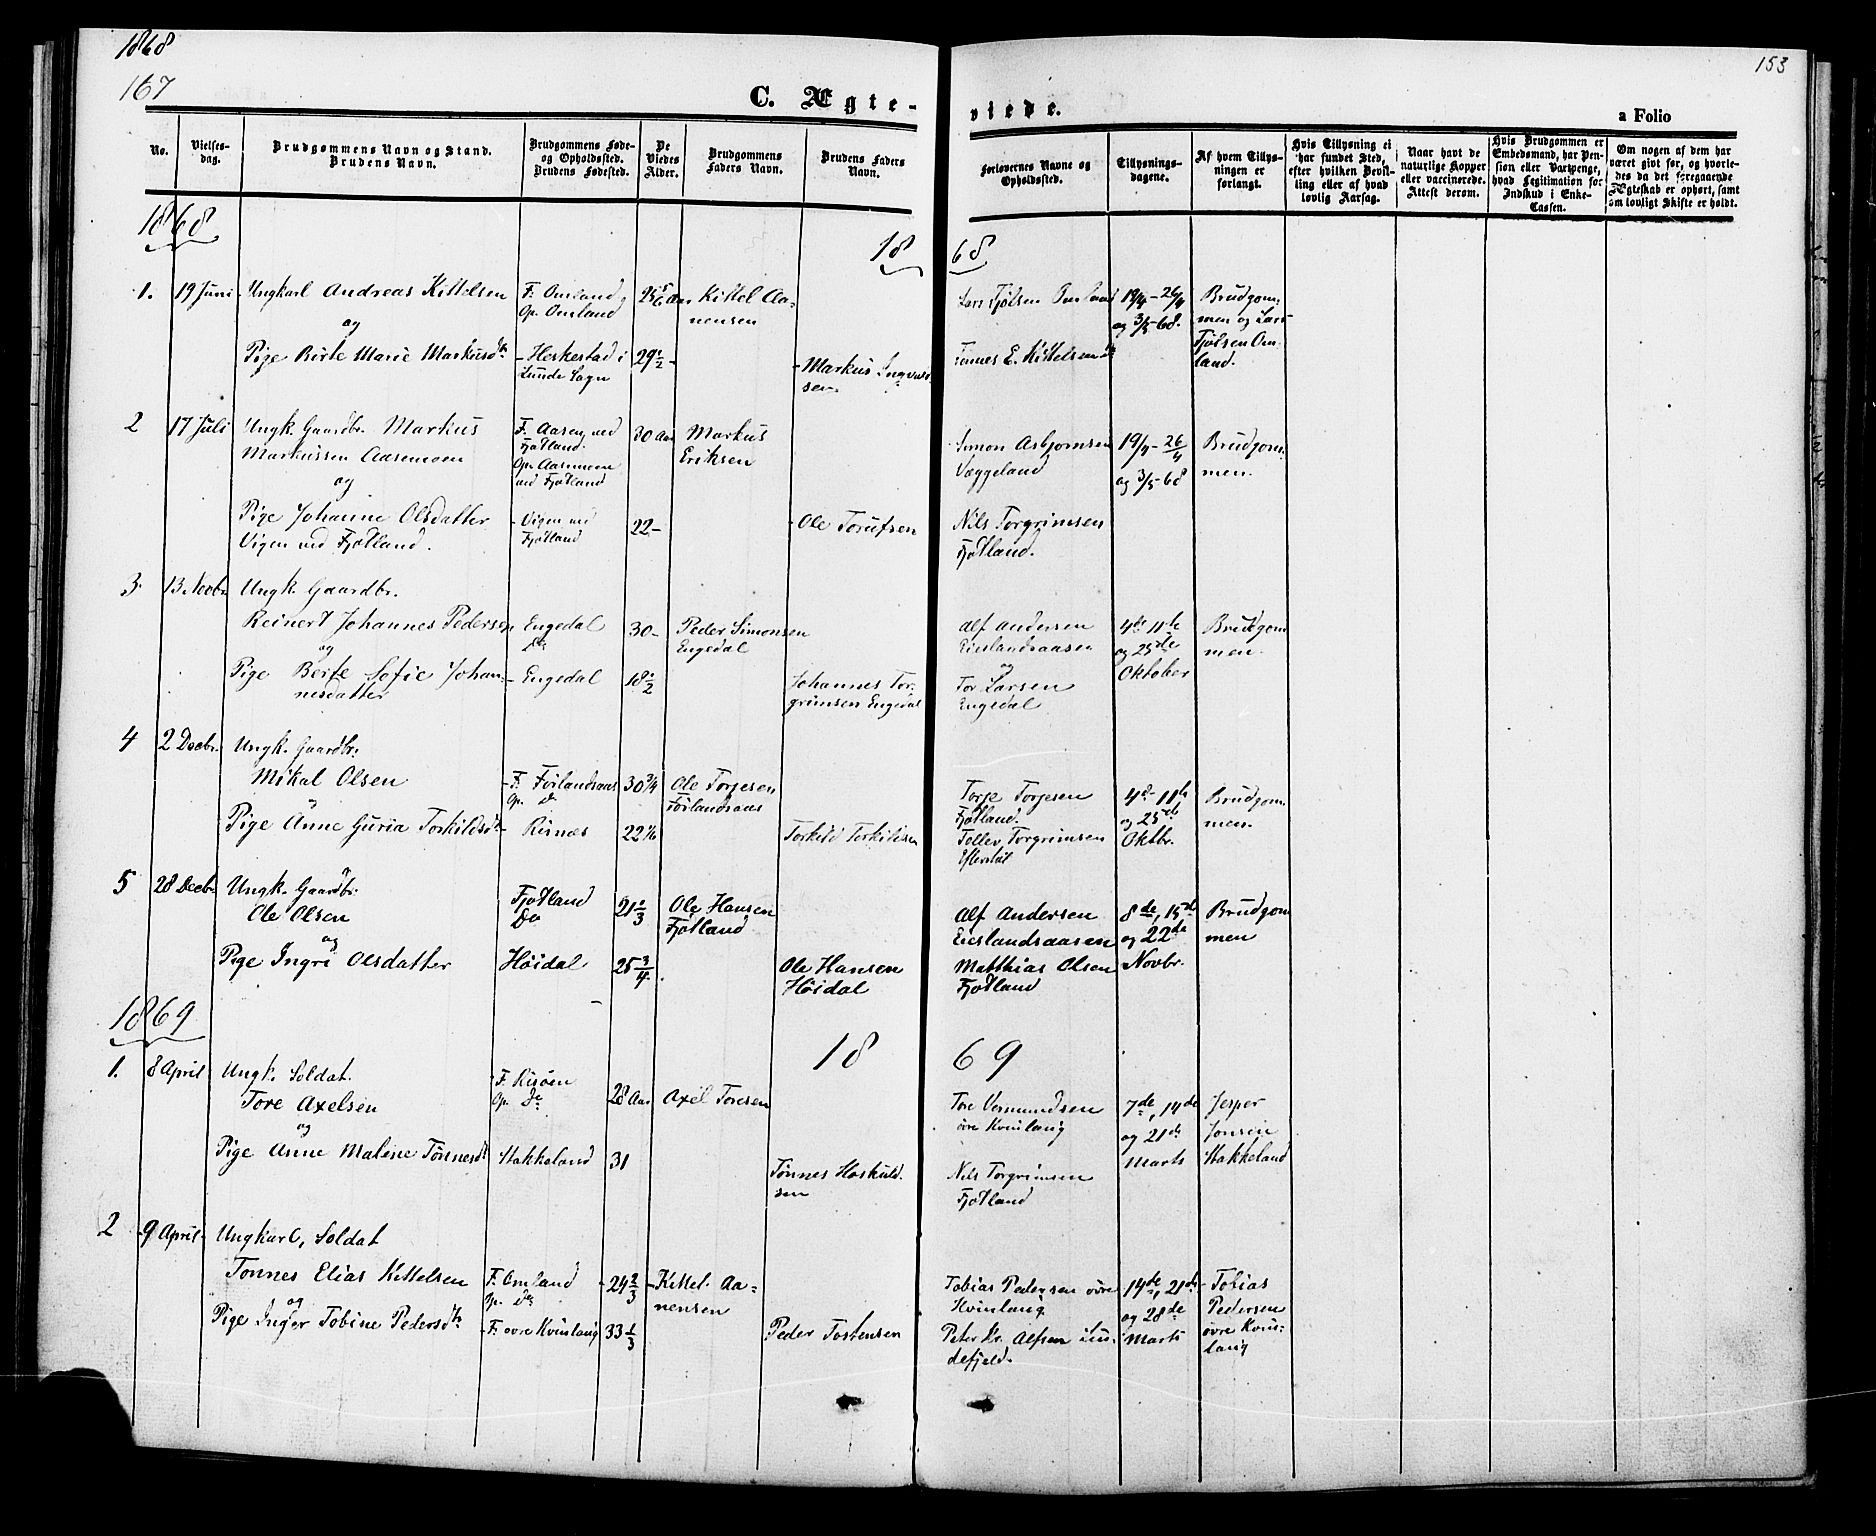 1868
167
153
C. Ægte-
viede.
a Folio
No.
Vielses-
dag.
Brudgommens Navn og Stand.
Brudens Navn.
Brudgommens Føde-
og Opholdssted.
Brudens Fødested.
De
Viedes
Alder.
Brudgommens
Faders Navn.
Brudens Faders
Navn.
Forlovernes Navne og
Opholdssted.
Tillysnings-
dagene.
Af hvem Tillys-
ningen er
forlangt.
Hvis Tillysning ei
har fundet Sted,
efter hvilken Bevil-
ling eller af hvad
lovlig Aarsag.
Naar havt de
naturlige Kopper
eller vaccinerede.
Attest derom.
Hvis Brudgommen er
Embedsmand, har Pen-
sion eller Vartpenge,
hvad Legitimation for
Indskud i Enke-
Cassen.
Om nogen af dem har
været givt før, og hvorle-
des da det foregaaende
Ægteskab er ophørt, samt
om lovligt Skifte er holdt.
1868
18 68
1. 19 Juni
Ungkarl Andreas Kittelsen
og
Pige Birte Marie Markusdtr
F. Omland
Op. Omland
- Heskestad i
Lunde Sogn
25 5/6 Aar
29 1/2 -
Kittel Aa-
nensen
- Markus
sen
Lars Tjølsen Omland
Tønnes E. Kittelsen
19/4 - 26/4
og 3/5-68.
Brudgom-
men og Lars
Tjølsen Om-
land.
2 17 Juli
Ungk. Gaardbr. Markus
Markussen Aasemoen
og
Pige Johanne Olsdatter
Vigen ved Fjotland.
F. Aasen ved
Fjotland.
Op. Aasemoen
ved Fjotland
- Vigen ved
Fjotland
30 Aar
22 -
Markus
Eriksen
- Ole Torufsen
Simon Asbjørnsen
Væggeland
Nils Torgrimsen
Fjotland.
19/4 - 26/4
og 3/5-68
Brudgom-
men.
3. 13 Novbr.
Ungk. Gaardbr.
Reinert Johannes Pedersen
og
Pige Berte Sofie Johan-
nesdatter
Engedal
Do
- Engedal
30 -
18 1/2
Peder Simonsen
Engedal
Johannes Tor-
grimsen Engedal
Alf Andersen
Eieslandsaasen
og
Tor Larsen
Engedal
4de 11te
og 25de
Oktober
Brudgom-
men.
4 2 Decbr.
Ungk. Gaardbr.
Mikal Olsen
og
Pige Anne Guria Torkildsdtr
- F. Førlandsaas
Op. Do
- Risnæs
30 3/4
22 1/6
Ole Torjesen
Førlandsaas
Torkild Torkildsen
Torje Torjesen
Fjotland.
Tollev Torgrimsen
Eftestøl
4de 11te
og 25de
Oktbr.
Brudgom-
men.
5 28 Decbr.
Ungk. Gaardbr.
Ole Olsen
og
Pige Ingri Olsdatter
Fjotland
Do
Høidal
21 1/3
25 3/4
Ole Hansen
Fjotland
Ole Hansen
Høidal
Alf Andersen
Eieslandsaasen
Matthias Olsen
Fjotland
8de, 15de
og 22de
Novbr.
Brudgom
men
1869
18 69
1. 8 April
Ungk. Soldat.
Tore Axelsen
og
Pige Anne Malene Tønnesdtr
F. Risøen
Op. Do
Stakkeland
28 Aar
31
Axel Toresen
Tønnes Hoskuld-
sen
Tore Vermundsen
øvre Kvinlaug
Nils Torgrimsen
Fjotland
7de, 14de
og 21de
Marts
Jesper
Jonsen
Stakkeland
2 9 April
Ungkarl, Soldat
Tønnes Elias Kittelsen
og
Pige Inger Tobine Pedersdtr
F. Omland
Op. Do
- F. øvre Kvinlaug
24 2/3
33 1/3
- Kittel Aa-
nensen
Peder Tostensen
Tobias Pedersen øvre
Kvinlaug
Peter Kr. Alfsen
defjeld.
14de, 21de
og 28de
Marts
- Tobias
Pedersen
øvre Kvin-
laug